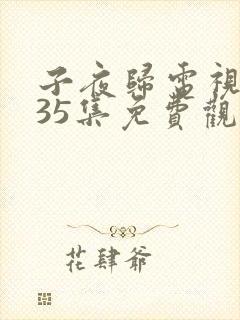 子夜歸電視
35集免費觀
花肆爺